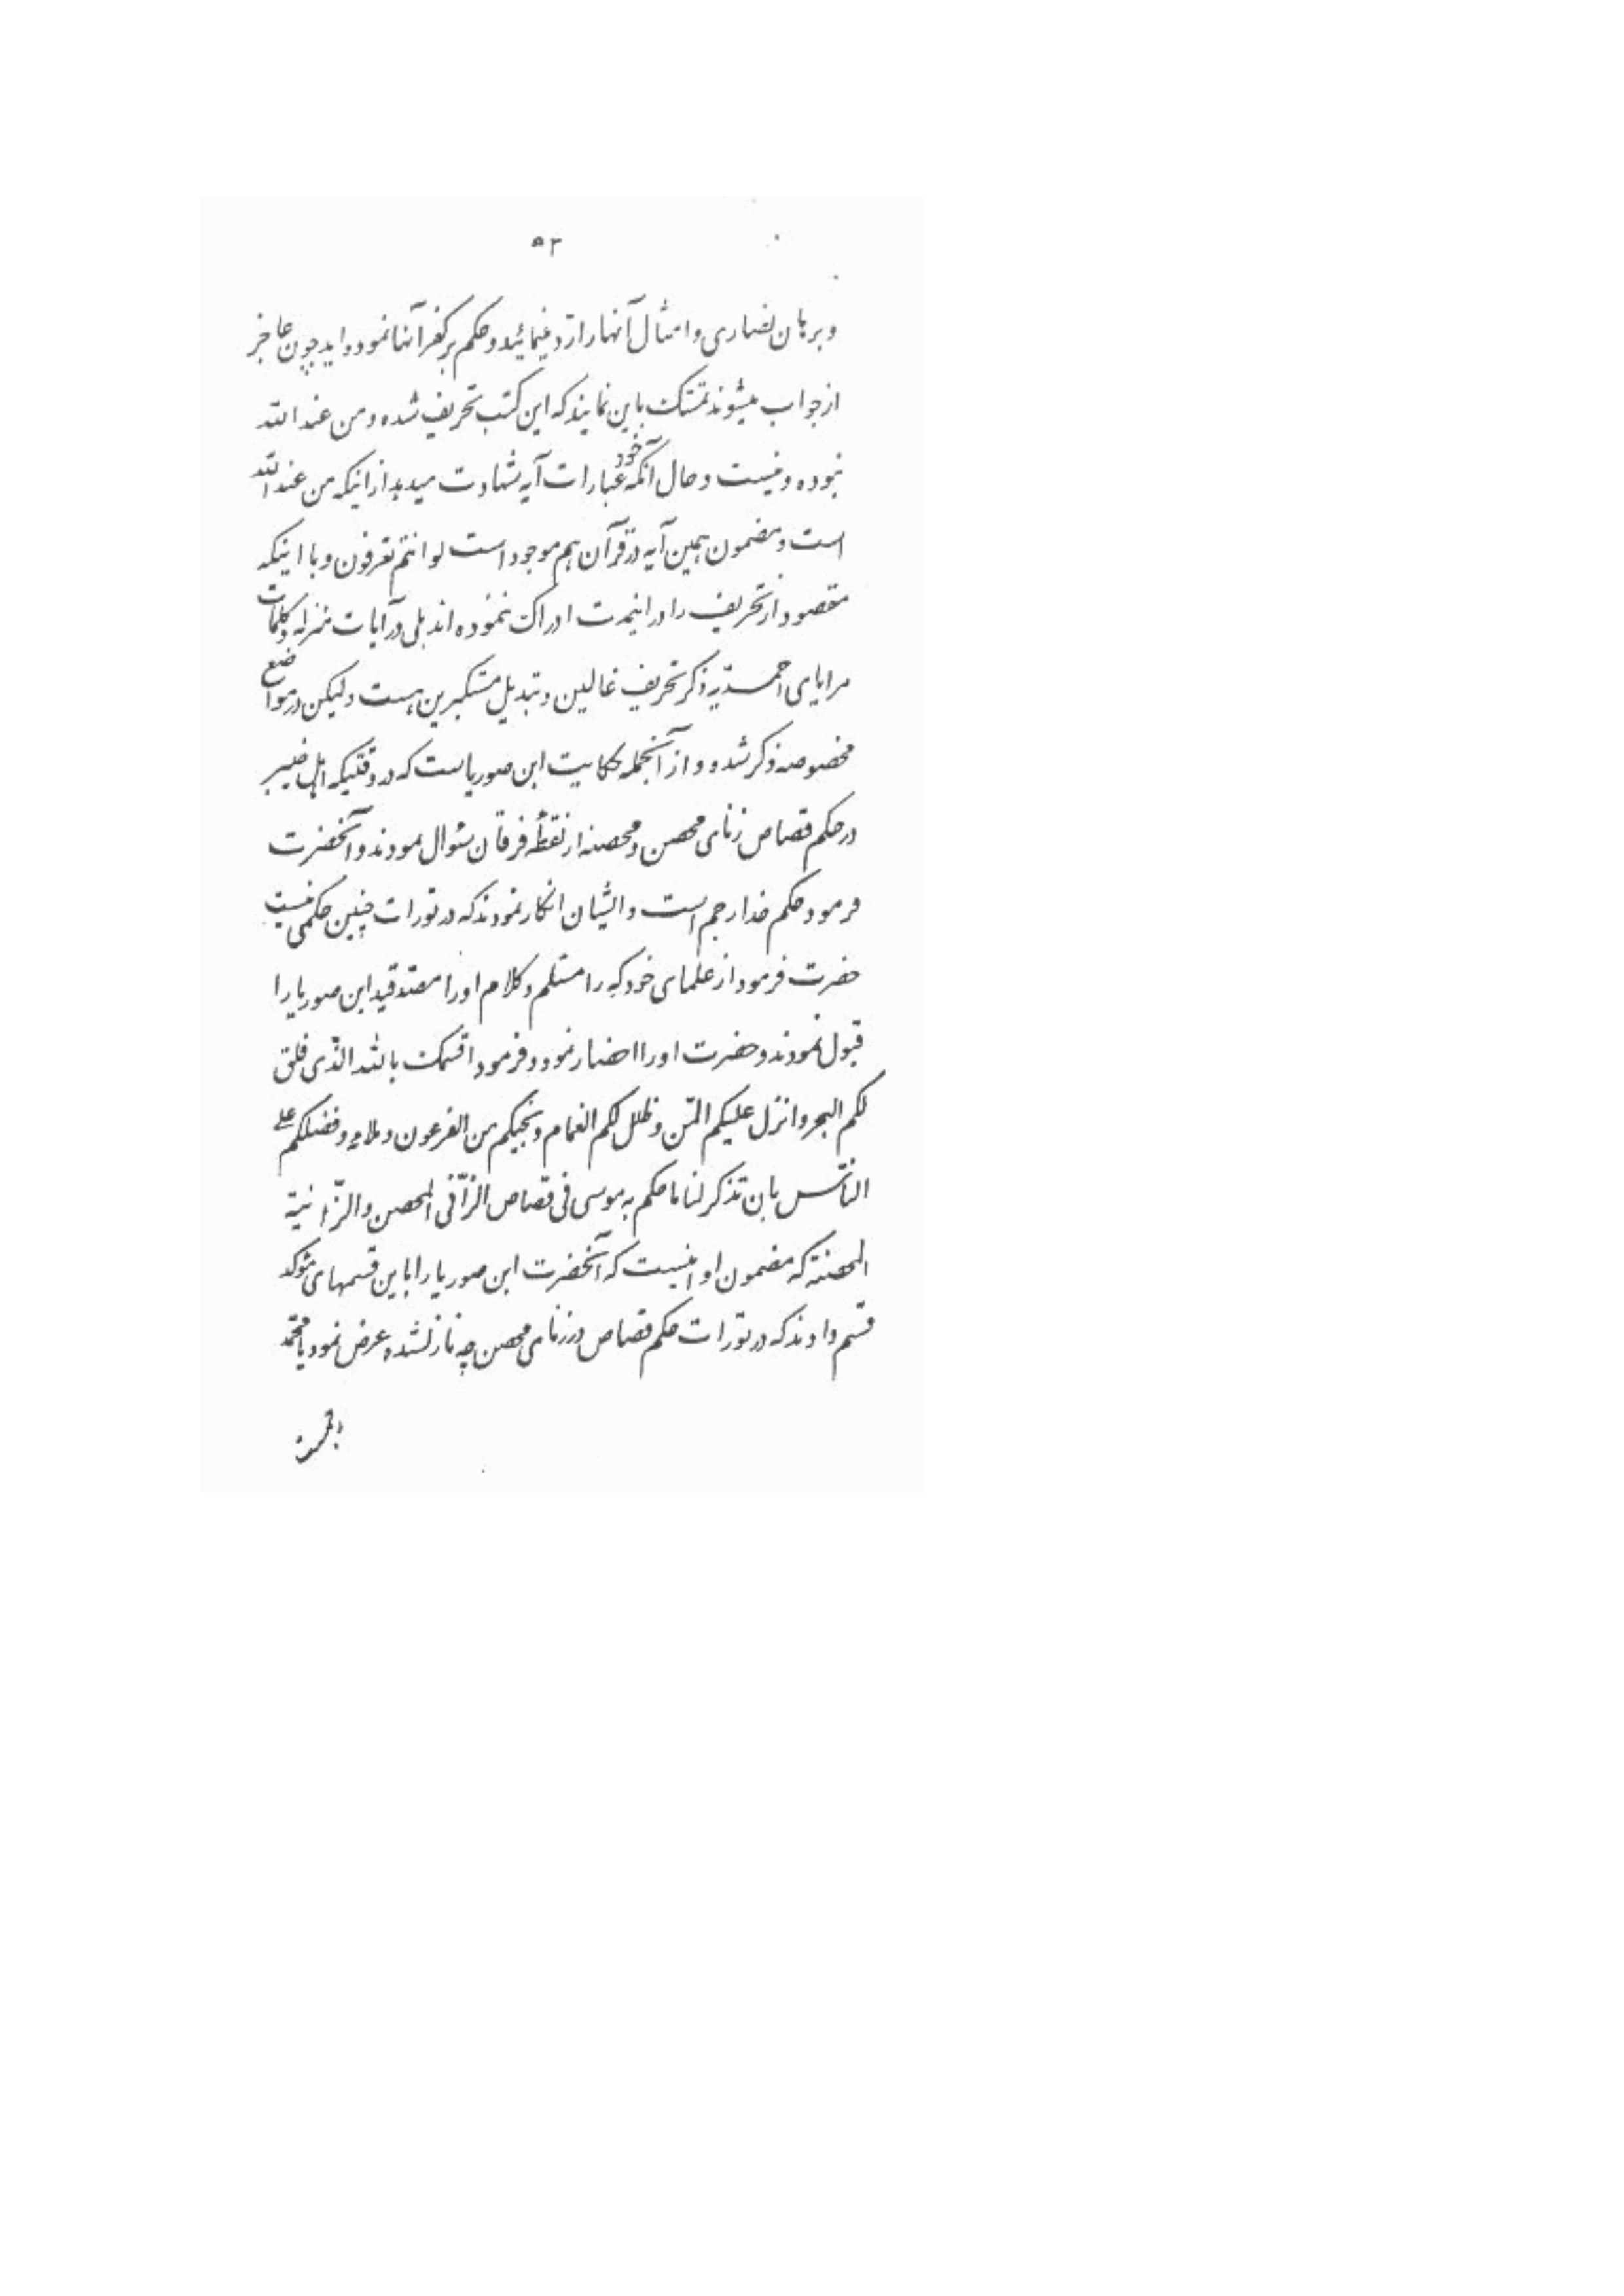 ۵۲
و برهان نصاری و امثال آنها را رد مینمائید و حکم بر کفر آنها نموده‌اید چون عاجز
از جواب میشوند تمسّک باین نمایند که این کتب تحریف شده و من عند اللّه
نبوده و نیست و حال آنکه خود عبارات آیه شهادت میدهد از اینکه من عند اللّه
است و مضمون همین آیه در قرآن هم موجود است لو انتم تعرفون و با اینکه
مقصود از تحریف را در اینمدت ادراک ننموده‌اند بلی در آیات منزله و کلمات
مرایای احمدیّه ذکر تحریف غالین و تبدیل مستکبرین هست ولیکن در مواضع
مخصوصه ذکر شده و از آنجمله حکایت ابن صوریا است که در وقتیکه اهل خیبر
در حکم قصاص زنای محصن و محصنه از نقطهٔ فرقان سئوال نمودند و آنحضرت
فرمود حکم خدا رجم است و ایشان انکار نمودند که در تورات چنین حکمی نیست
حضرت فرمود از علمای خود که را مسلّم و کلام او را مصدّقید ابن صوریا را
قبول نمودند و حضرت او را احضار نمود و فرمود اقسمک باللّه الّذی فلق
لکم البحر و انزل علیکم المنّ و ظلل لکم الغمام و نجیکم من الفرعون و ملاءه و فضلکم علی
النّاس بان تذکر لنا ما حکم به موسی فی قصاص الزّانی المحصن و الزّانیة
المحصنة که مضمون او اینست که آنحضرت ابن صوریا را باین قسمهای مؤکد
قسم دادند که در تورات حکم قصاص در زنای محصن چه نازل شده عرض نمود یا محمّد